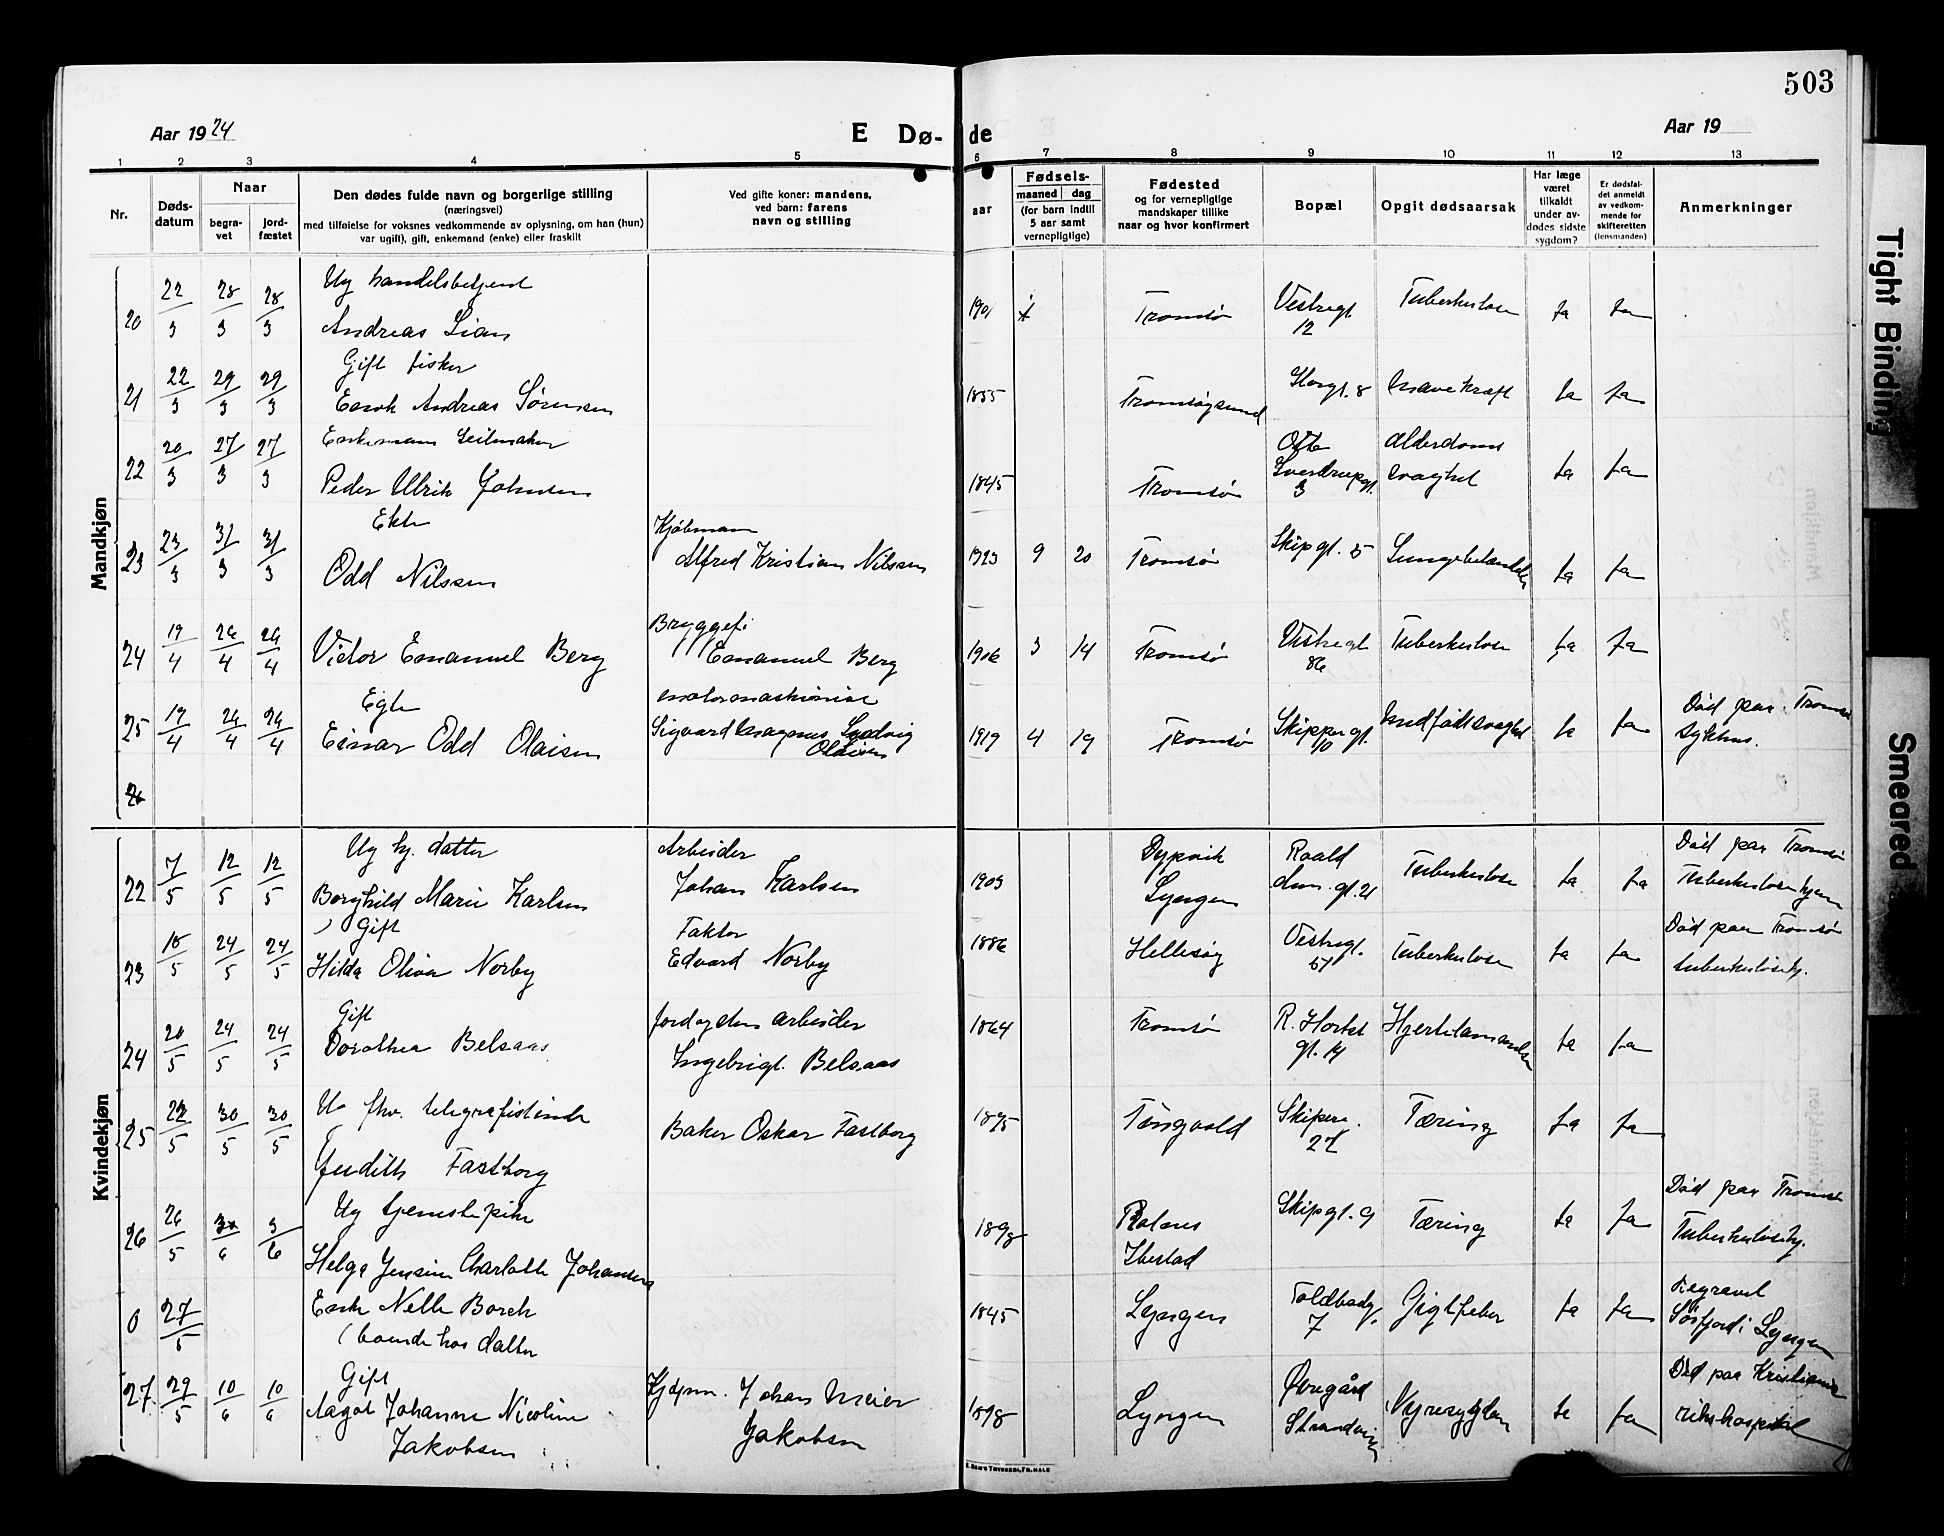 503
Aar 1924
E Dø- de
Aar 19
1 2 3 4 5 6 7 8 9 10 11 12 13
Nr.
Døds-
datum
Naar
begra-
vet
jord-
fæstet
Den dødes fulde navn og borgerlige stilling
(næringsvei)
med tilføielse for voksnes vedkommende av oplysning, om han (hun)
var ugift), gift, enkemand (enke) eller fraskilt
Ved gifte koner: mandens,
ved barn: farens
navn og stilling
Fødsels-
aar
maaned dag
(for barn indtil
5 aar samt
vernepligtige)
Fødested
og for vernepligtige
mandskaper tillike
naar og hvor konfirmert
Bopæl
Opgit dødsaarsak
Har læge
været
tilkaldt
under av-
dødes sidste
sygdom?
Er dødsfal-
det anmeldt
av vedkom-
mende for
skifteretten
(lensmanden)
Anmerkninger
Mandkjøn
20 22/3 28/3 28/3 Ug handelsbetjent
Andreas Lian
1901 Tromsø Vestregt.
12
Tuberkulose Ja Ja
21 22/3 29/3 29/3 Gift fisker
Enok Andreas Sørensen
1855 Tromsøysund Storgt. 8 Mavekræft Ja Ja
22 20/3 27/3 27/3 Enkemann Seilmaker
Peder Ulrik Johnsen
1845 Tromsø Otto
Sverdrupgt.
3
Alderdoms
svaghet
Ja Ja
23 23/3 31/3 31/3 Ekte
Odd Nilssen
Kjøbmann
Alfred Kristian Nilssen
1923 9 20 Tromsø Skipgt. 5 Lungebetændelse Ja Ja
24 19/4 24/4 24/4 Victor Emanuel Berg
Bryggefi
Emanuel Berg
1906 3 14 Tromsø Vestregt
86
Tuberkulose Ja Ja
25 19/4 24/4 24/4 Egte
Einar Odd Olaisen
motormaskinist
Sigvard Magnus Ludvig
Olaisen
1919 4 19 Tromsø Skippergt.
10
Medfødt svaghet Ja Ja Død paa Tromsø
sykehus.
Kvindekjøn
22 7/5 12/5 12/5 Ug hj. datter
Borghild Marie Karlsen
Arbeider
Johan Karlsen
1903 Dypvik
Lyngen
Roald
Ams. gt. 21
Tuberkulose Ja Ja Død paa Tromsø
Tuberkulosehjem
23 18/5 24/5 24/5 Gift
Hilda Oliva Norby
Faktor
Edvard Norby
1886 Hellesøy Vestregt.
51
Tuberkulose Ja Ja Død paa Tromsø
tuberkulosehj.
24 20/5 24/5 24/5 Gift
Dorothea Belsaas
Jord og stens arbeider
Ingebrigt Belsaas
1864 Tromsø R. Horks
gt. 14
Hjertelammelse Ja Ja
25 22/5 30/5 30/5 U. fhv. telegrafistinde
Judith Fastborg
Baker Oskar Fastborg
1895 Tingvold Skipper.
22
Tæring Ja Ja
26 26/5 3/6 3/6 Ug tjenestepike
Helga Jensine Charlotte Johansen
1898 Rolnes
Ibestad
Skipgt. 9 Tæring Ja Ja Død paa Tromsø
Tuberkulosehj.
0 27/5 Enke Nelle Borch
(boende hos datter
1845 Lyngen Toldbodg.
7
Gigtfeber Ja Ja Begravet
Sørfjord i Lyngen
27 29/5 10/6 10/6 Gift
Aagot Johanne Nicoline
Jakobsen
Kjøpm. Johan Meier
Jakobsen
1898 Lyngen Øvregård
Strandvein
Nyresygdom Ja Ja Død paa Kristiania
rikshospital
E. Sem's Trykkeri, Fr.hald
Tight Binding
Smeared